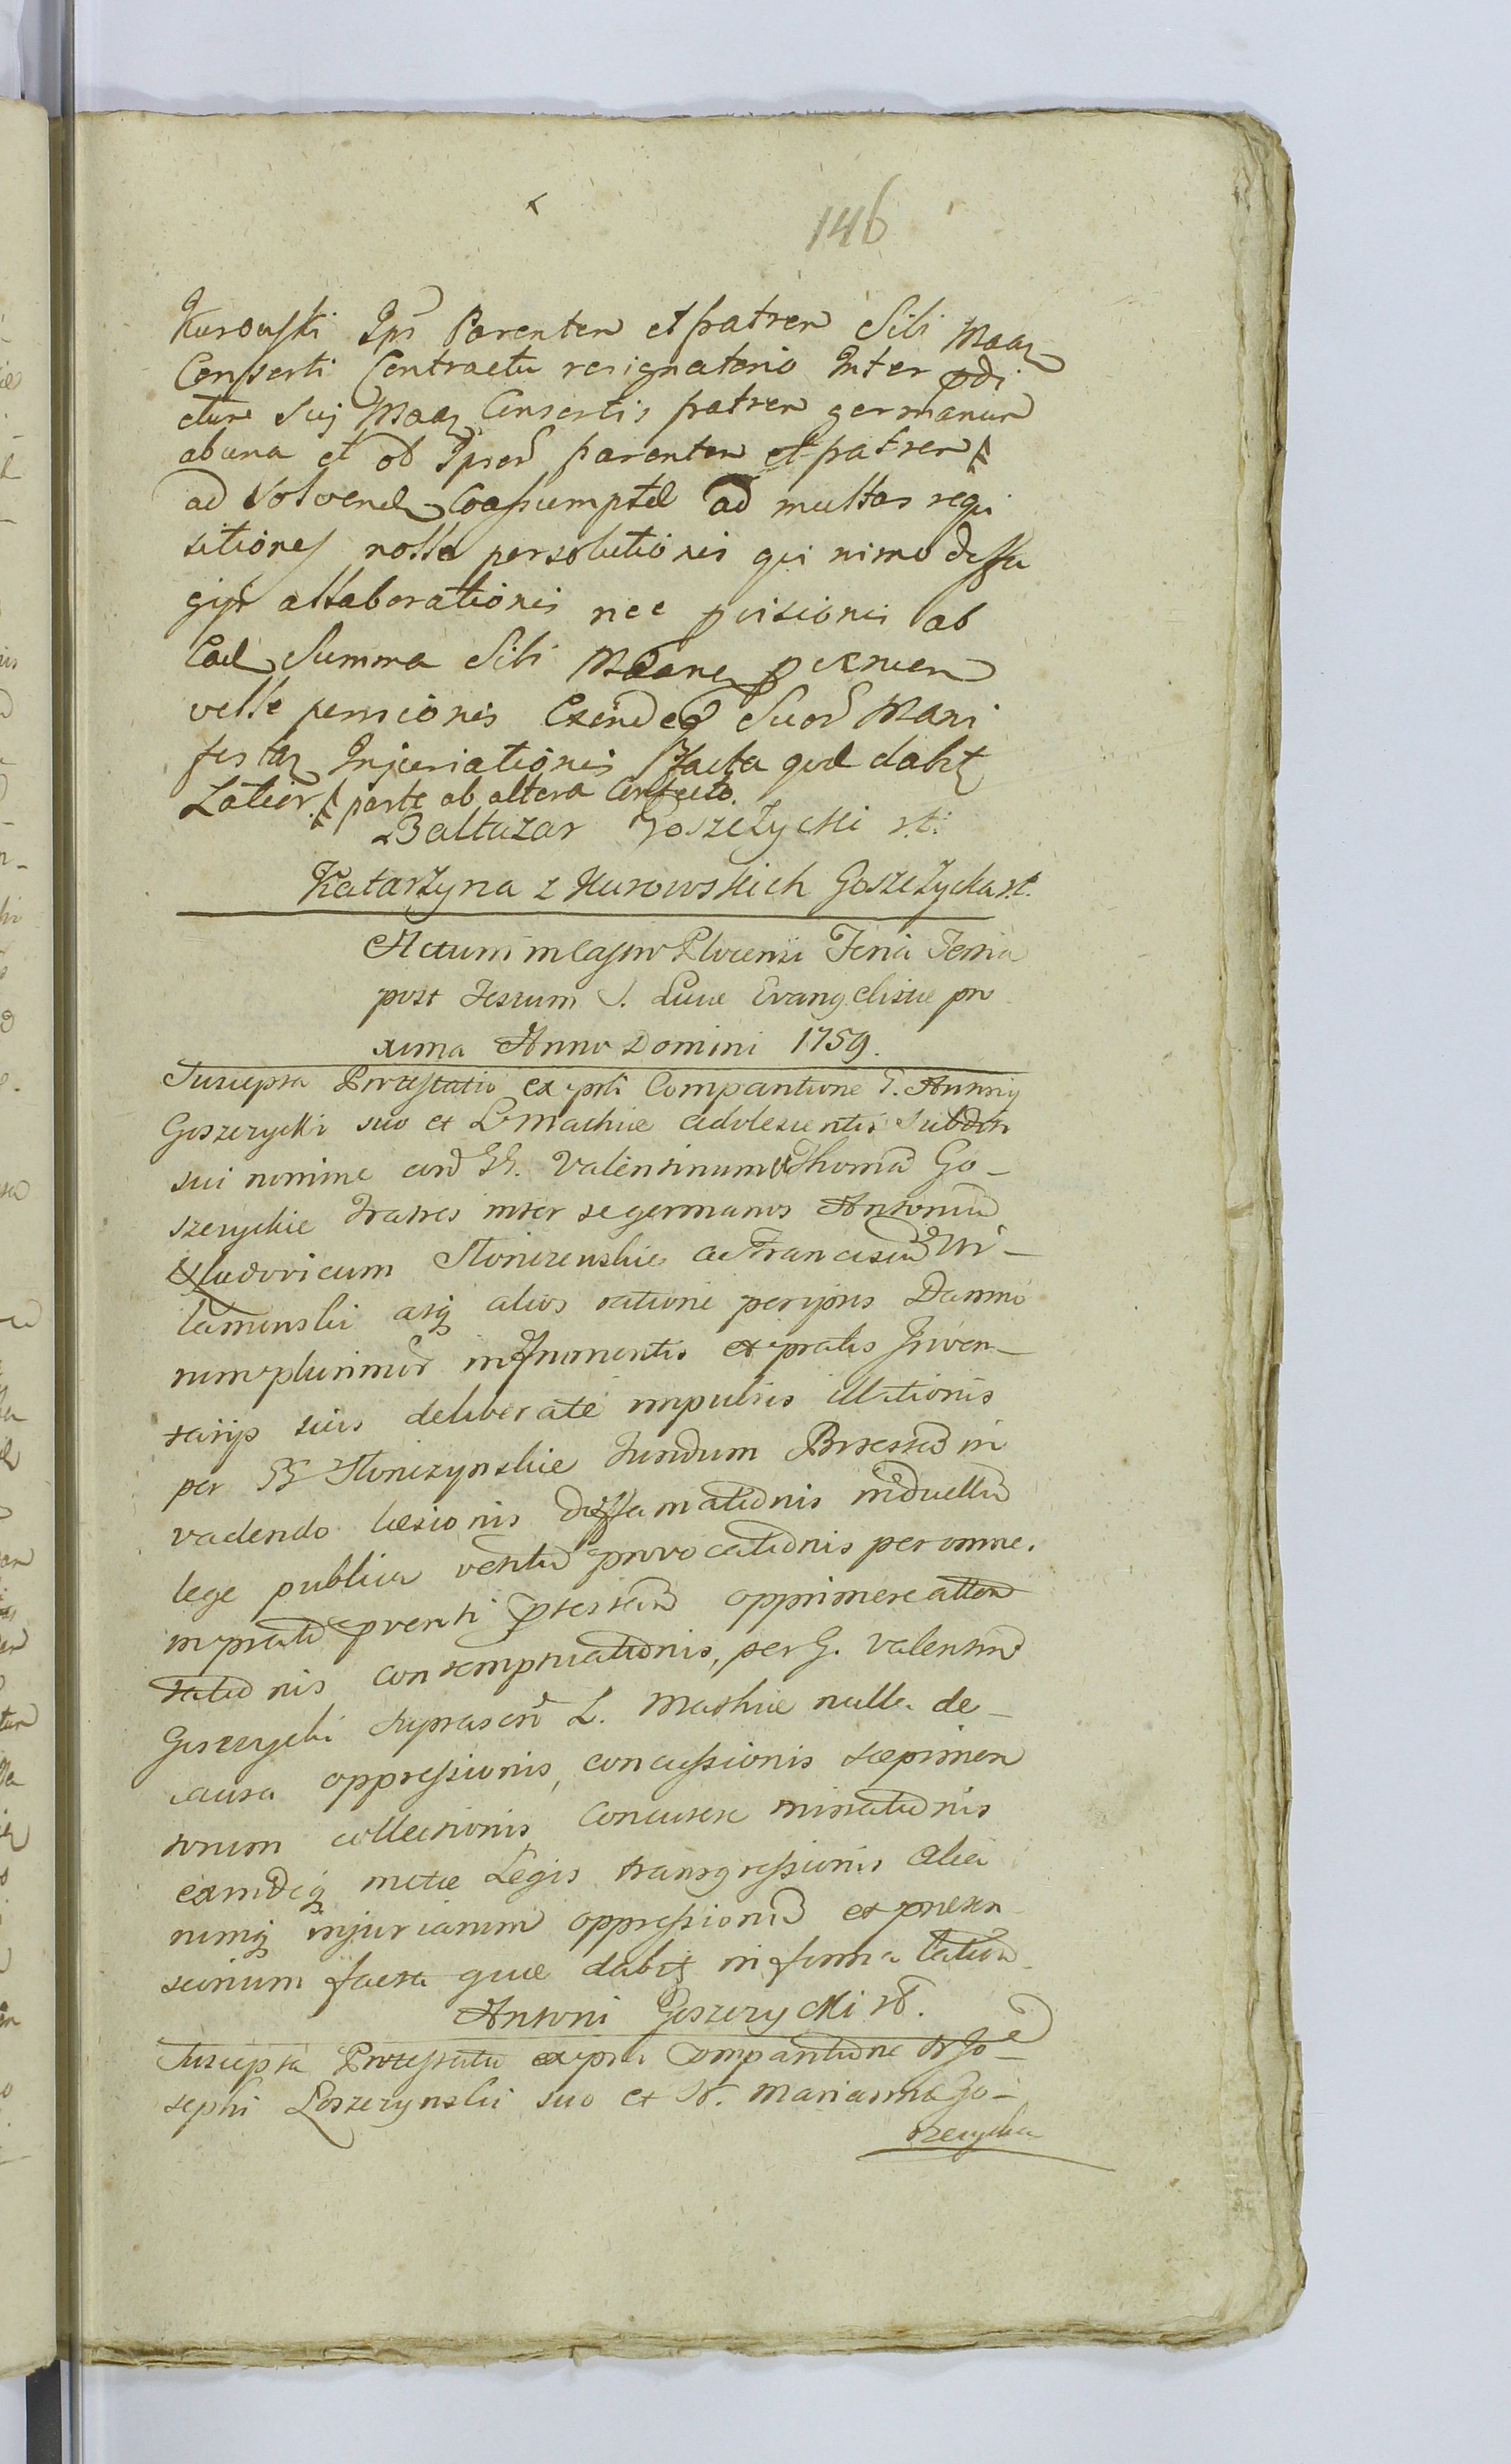 146
Kurowski Ips Parentem et fratrem Sibi Maaz
Conserti Contractu resignatorio Inter pdi
ctum Suj Maaz Consortis fratrem germanum
ab una et ob Ipsor parentem et fratrem
ad Solvend Coassumptae ad multas requi
sitiones nolle persolutionis qui nimo deffu
gij allaborationis nec
Ead Summa Sibi
velle pensionis Suor Mani
festaz Injuriationis facta qvae dabit
Latior. parte ab altera Confecto.
Baltazar Goszczycki rt.
Katarzyna z Kurowskich Goszczycka rt.
Actum in Castro Plocensi Feria Tertia
post Festum S. Lucae Evangelistae pro
xima Anno Domini 1759.
Suscepta Protestatio ex psti Comparitione G. Antonij
Goszczycki suo et L. Mathiae adolescentis Subditi
sui nomine con GG. Valentinum & Thomam Go-
szczyckie Fratres inter se germanos Antonium
& Ludovicum Słonczenskie ac Franciscum Wi-
tamowski atq alios ratione per ipsos Damno
rum plurimor in Frumentis et pratis Inven-
tarijs suis deliberate impulsis illationis
per GG Słonczynskie Fundum in
vadendo laesionis diffamationis in duellum
lege publica vetitum provocationis per omne.
in pratum opprimere atten
tationis contemptuationis, per G. Valentinum
Goszczycki suprascri L. Mathiae nulla de
causa oppressionis, concussionis saepimen
torum collectionis, Concutere minationis
eamdeq metae Legis transgressionis alia
rumq injuriarum oppressionum et
facta quae dabit in forma latior.
Antoni Goszczycki rt.
Suscepta Protestatio ex psti Comparitione Jo-
sephi Loszczynski suo et Marianna Go-
szczycka